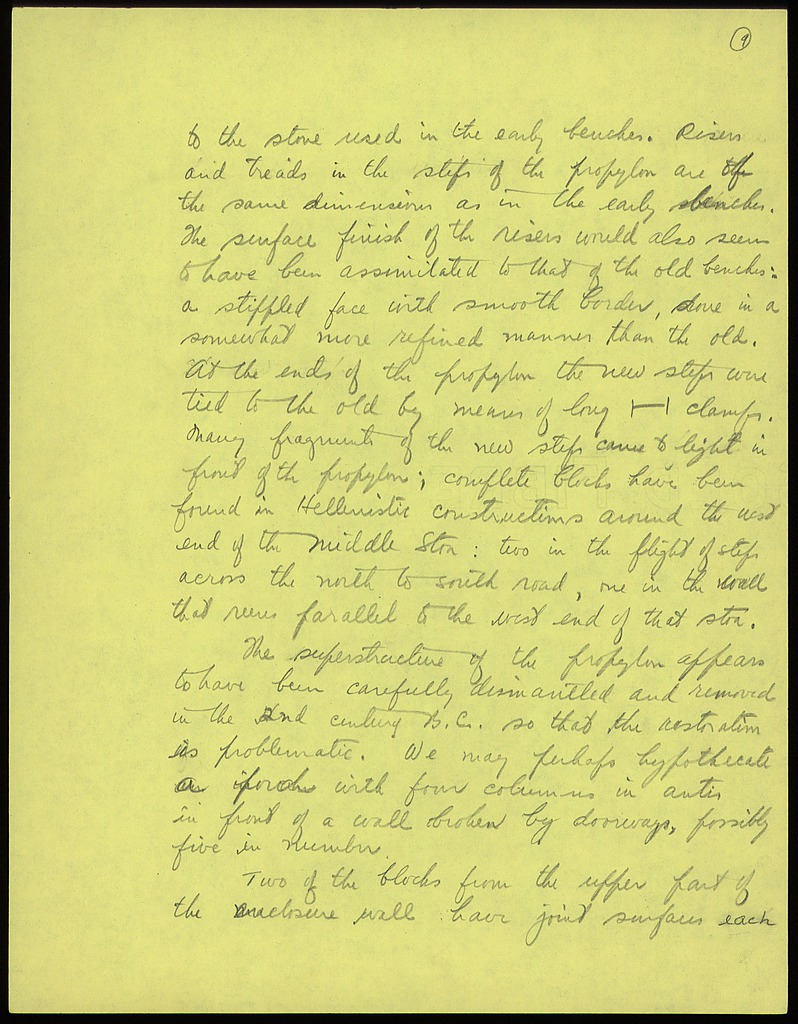 9
to the stone used in the early benches. Risers
and treads in the steps of the propylon are of
the same dimensions as in the early benches.
The surface finish of the risers would also seem
to have been assimilated to that of the old benches:
a stippled face with smooth border, done in a
somewhat more refined manner than the old.
At the ends of the propylon the new steps were
tied to the old by means of long |—| clamps.
Many fragments of the new steps came to light in
front of the propylon; complete blocks have been
found in Hellenistic constructions around the west
end of the Middle Stoa: two in the flight of steps
across the north to south road, one in the wall
that runs parallel to the west end of that stoa.
The superstructure of the propylon appears
to have been carefully dismantled and removed
in the 2nd century B.C. so that the restoration
is problematic. We may perhaps hypothecate
a porch with four columns in antis
in front of a wall broken by doorways, possibly
five in number.
Two of the blocks from the upper part of
the enclosure wall have joint surfaces each